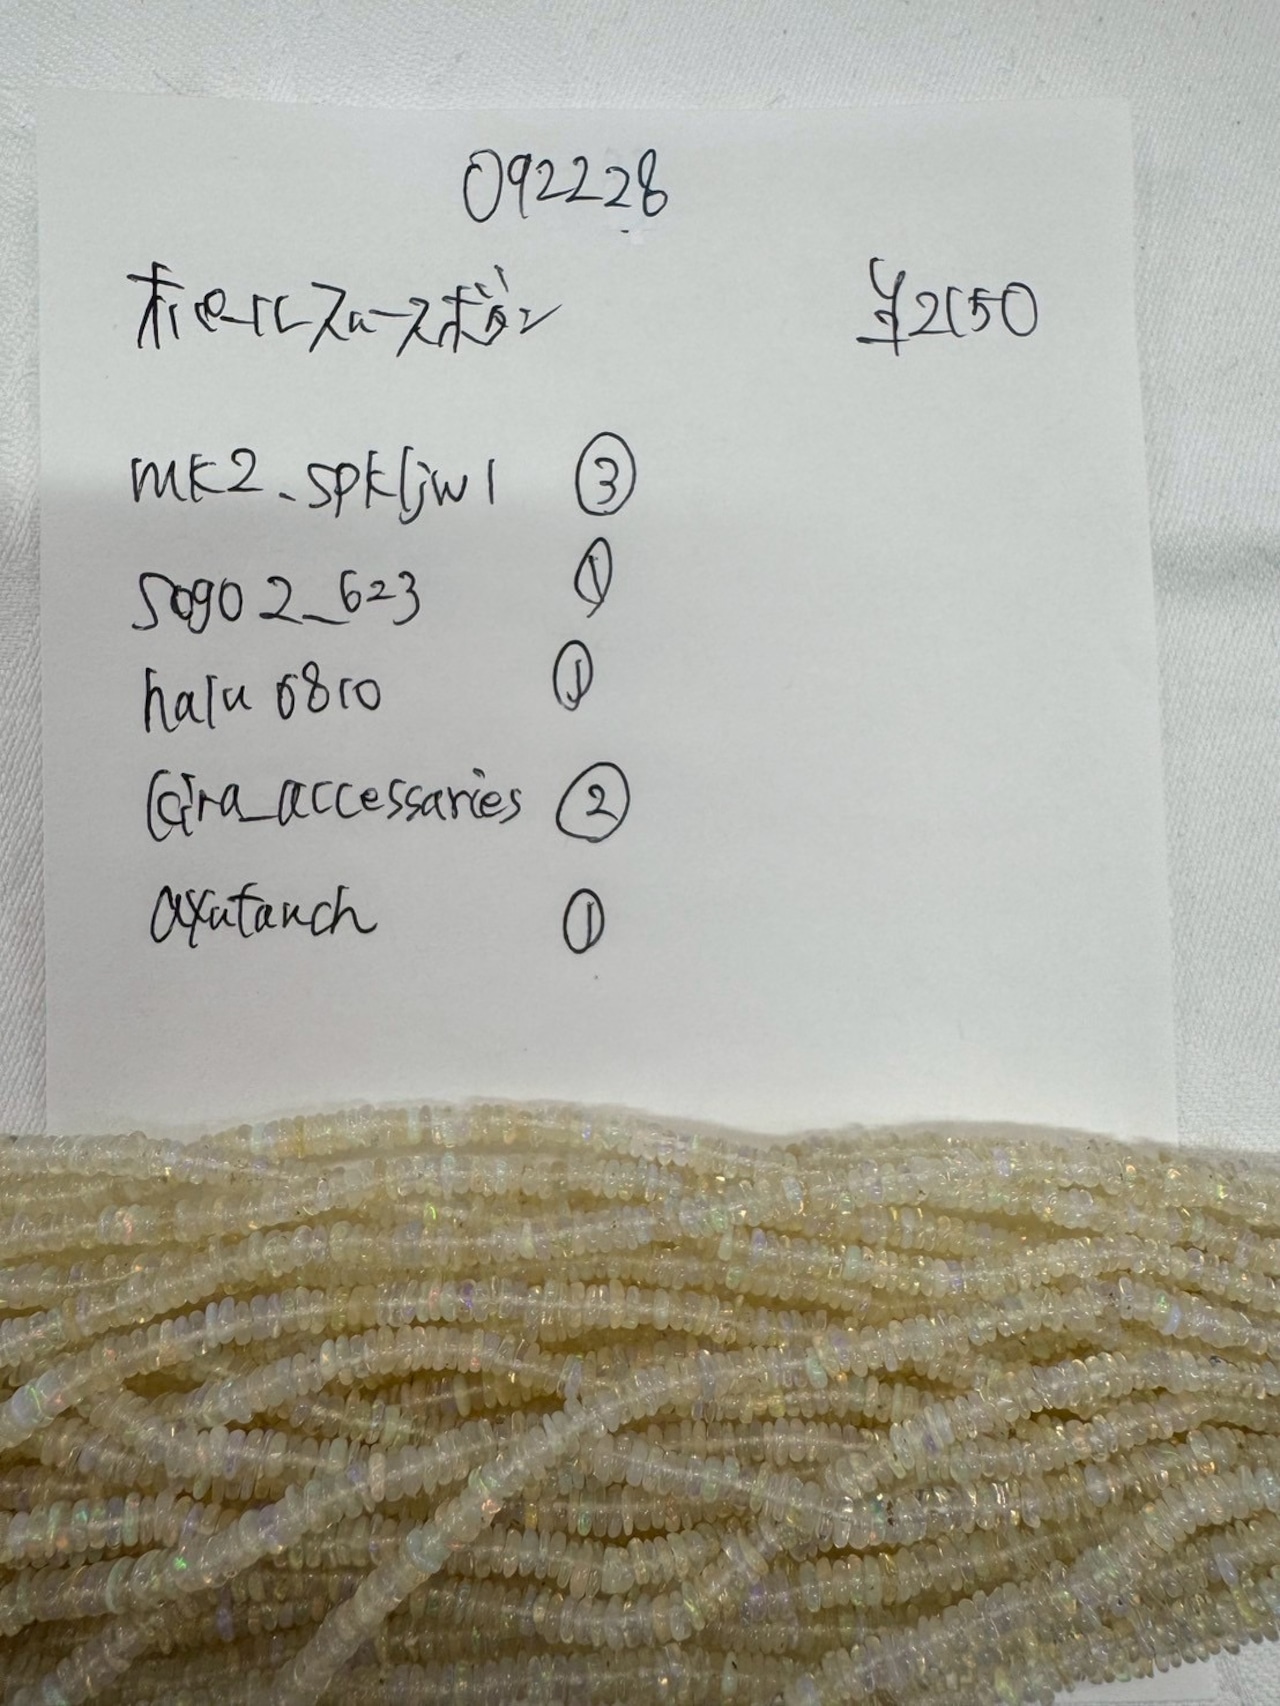 092228
オパールスムースボタン ¥2150
mk2_spkljw1 ③
sogo2_623 ①
halu6810 ①
@ira_accessaries ②
axutanch ①